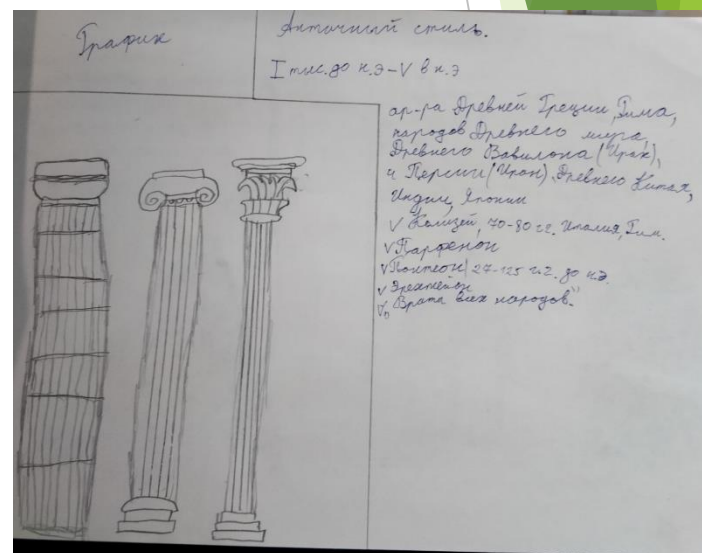 График
Античный стиль.
I тыс. до н.э – V в н.э
ар-ра Древней Греции, Рима,
народов Древнего мира,
Древнего Вавилона (Ирак),
и Персии (Иран), Древнего Китая,
Индии, Японии
V Колизей, 70-80 г.г. Италия, Рим.
V Парфенон
V Пантеон 27-125 г.г. до н.э.
V Эрехтейон
V "Врата всех народов."